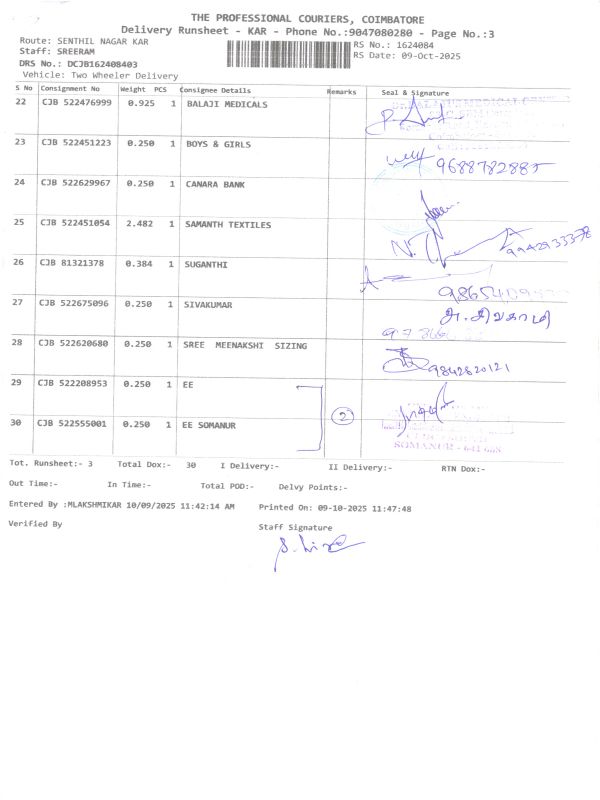 THE PROFESSIONAL COURIERS, COIMBATORE
Delivery Runsheet - KAR - Phone No.:9047080280 - Page No.:3
Route: SENTHIL NAGAR KAR RS No.: 1624084
Staff: SREERAM RS Date: 09-Oct-2025
DRS No.: DCJB162408403
Vehicle: Two Wheeler Delivery
S No Consignment No Weight PCS Consignee Details Remarks Seal & Signature
22 CJB 522476999 0.925 1 BALAJI MEDICALS
23 CJB 522451223 0.250 1 BOYS & GIRLS
9688782885
24 CJB 522629967 0.250 1 CANARA BANK
25 CJB 522451054 2.482 1 SAMANTH TEXTILES
9942933378
26 CJB 81321378 0.384 1 SUGANTHI
27 CJB 522675096 0.250 1 SIVAKUMAR
28 CJB 522620680 0.250 1 SREE MEENAKSHI SIZING
9842620121
29 CJB 522208953 0.250 1 EE
2
30 CJB 522555001 0.250 1 EE SOMANUR
SOMANUR - 641 668
Tot. Runsheet:- 3 Total Dox:- 30 I Delivery:- II Delivery:- RTN Dox:-
Out Time:- In Time:- Total POD:- Delvy Points:-
Entered By :MLAKSHMIKAR 10/09/2025 11:42:14 AM Printed On: 09-10-2025 11:47:48
Verified By Staff Signature